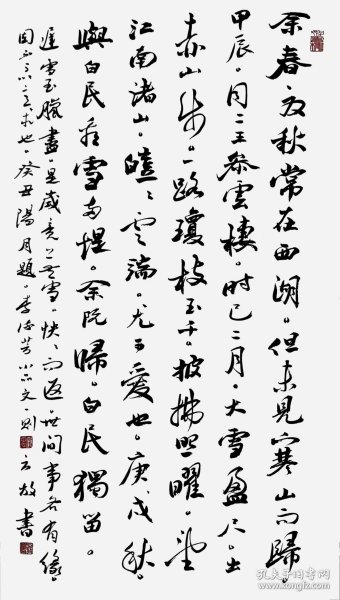 余春夏秋常在西湖。但未見寒山而歸。
甲辰。同二王參雲棲。時已二月。大雪盈尺。出
赤山步。一路瓊枝玉干。披拂照曜。望
江南諸山。皚々雲端。尤可愛也。庚戌秋。
與白民看雪兩堤。余既歸。白民獨留。
遲雪至臘盡。是歲竟無雪。怏々而返。世間事各有緣。
固不可以意求也。癸丑陽月題。李流芳小品文一則 云放書
孔夫子旧书网